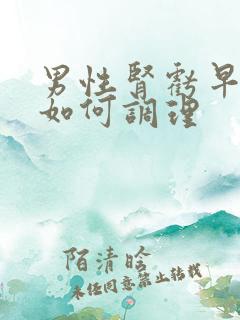 男性肾虧早
如何調理
陌清晗
未经同意禁止转载